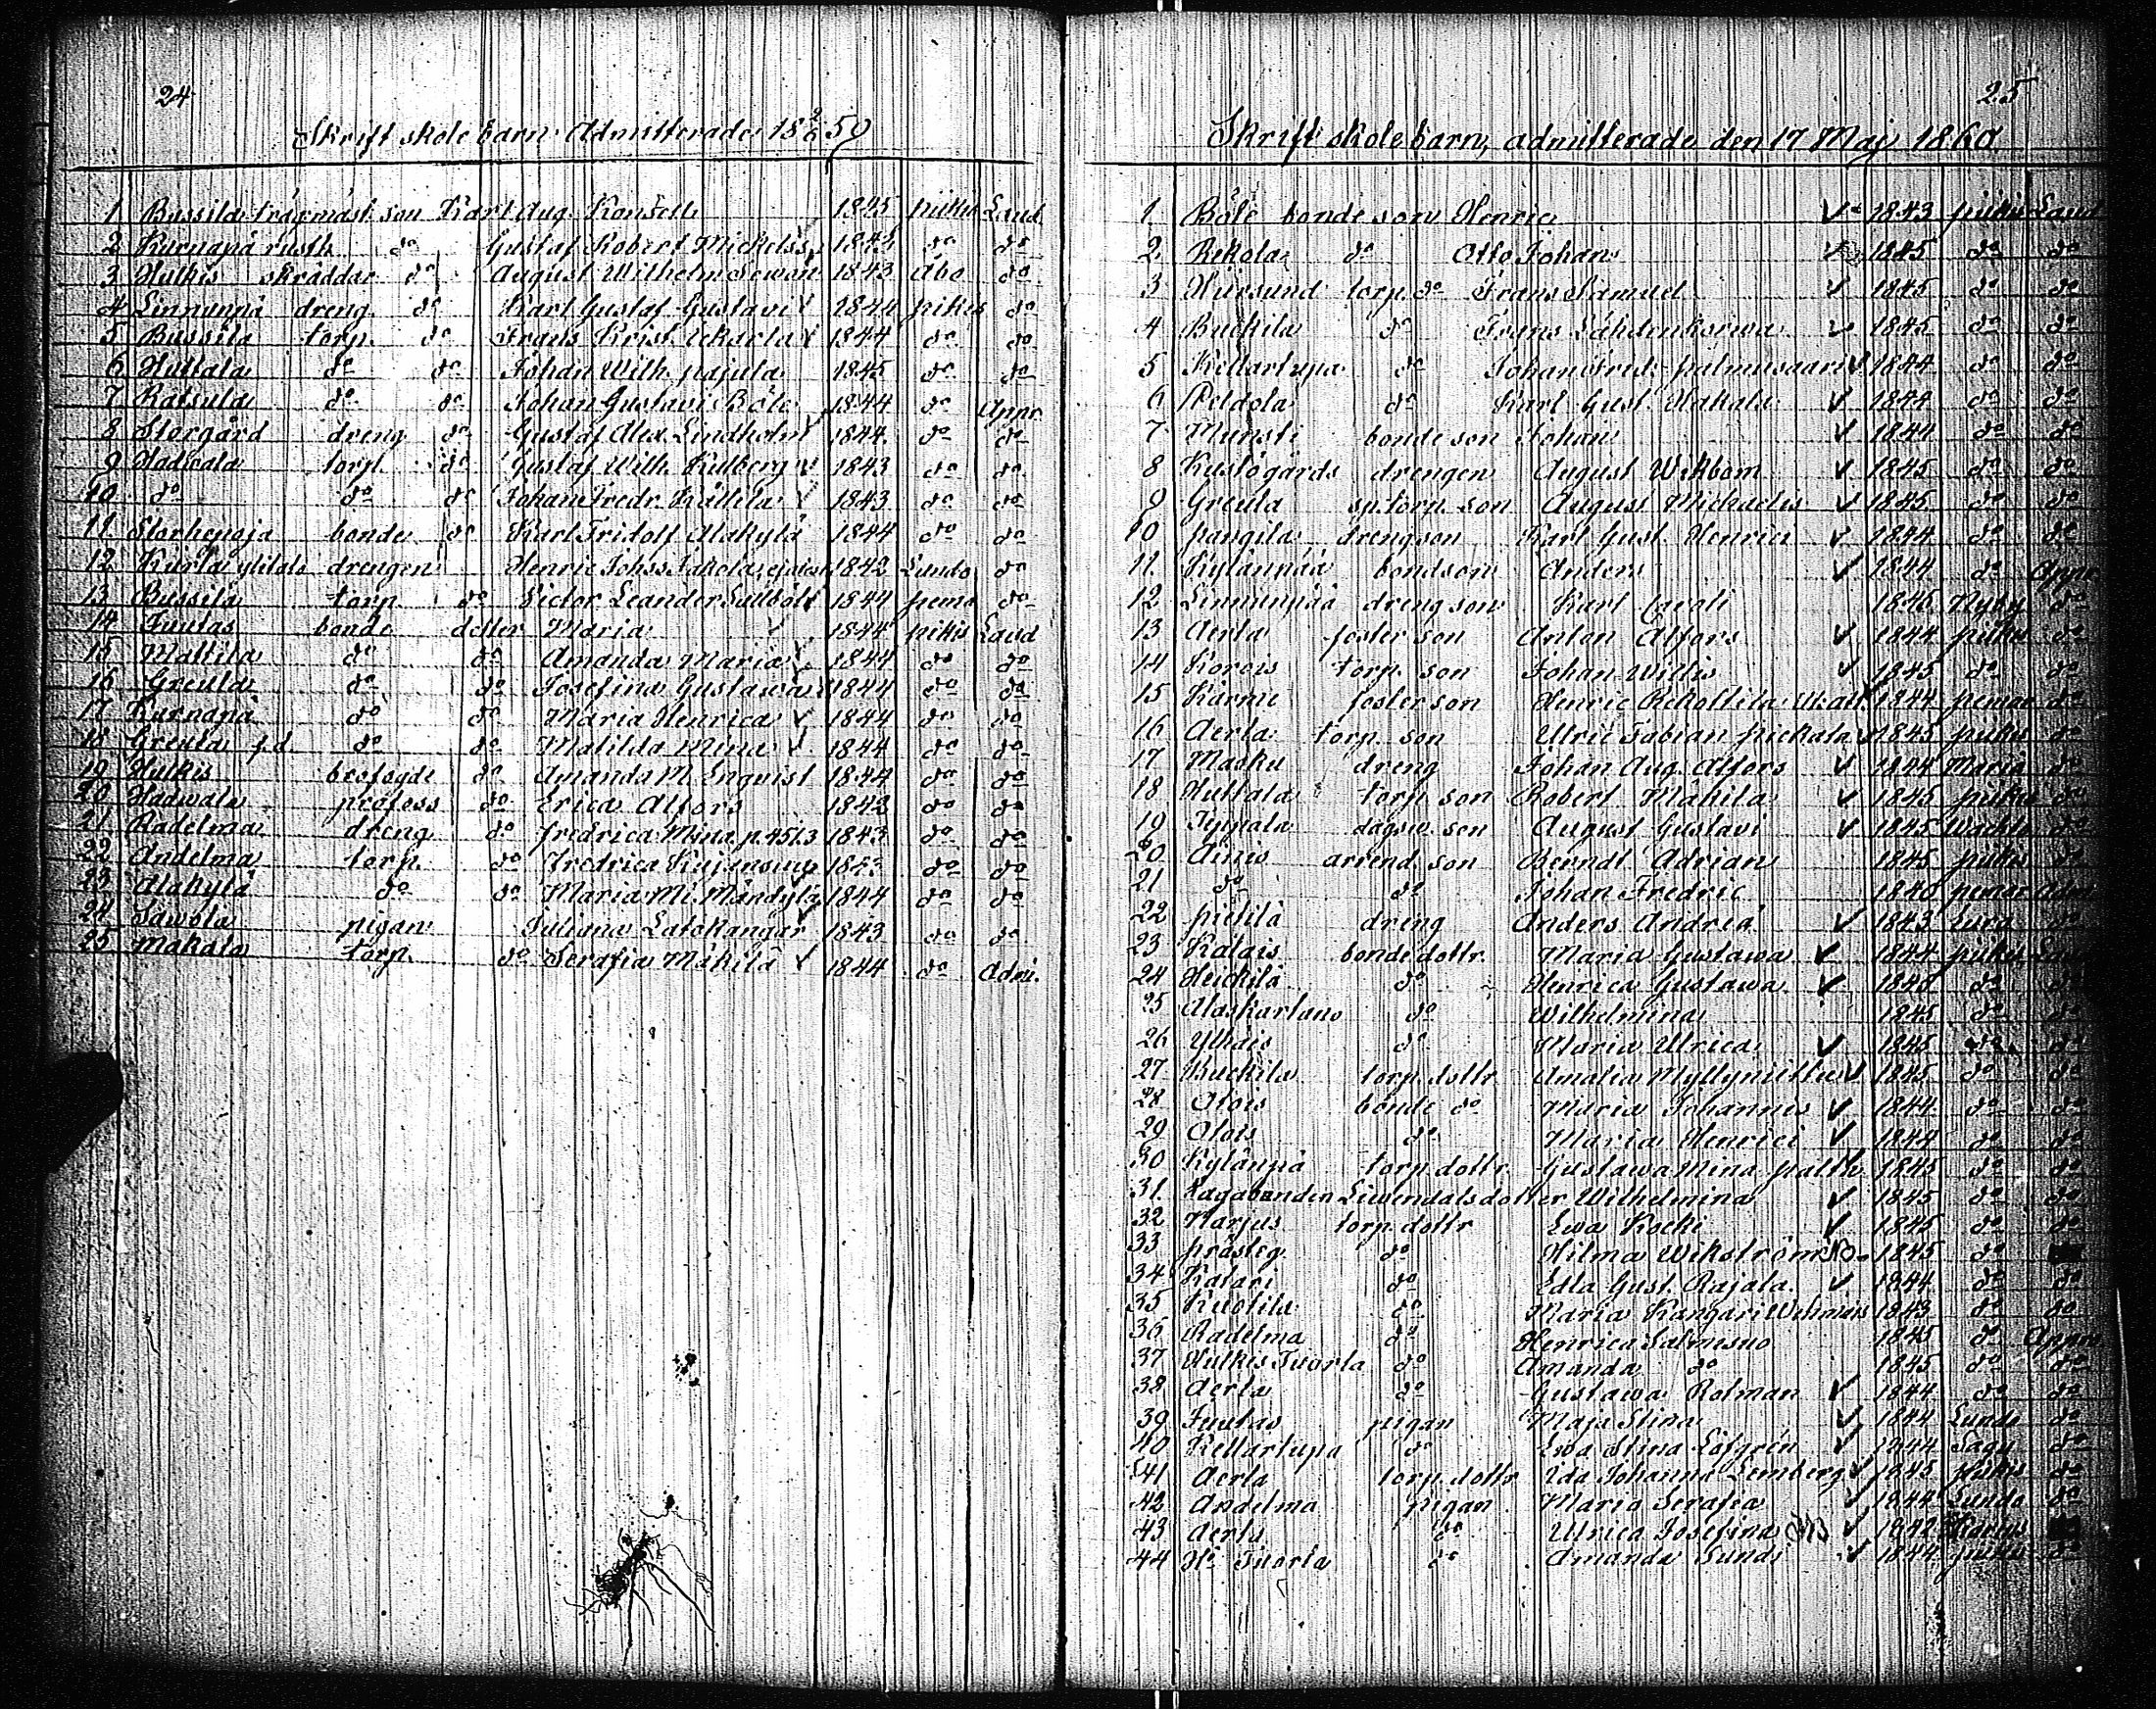 24
Skriftskolebarn Admitterade 18 2/6 59
1 Bussila trägmäst. son Karl Aug. Konsell 1845 piikis Laud
2 Kurnapä rusth. do Gustaf Robert Mickelss. 1843 do do
3 Hulkis skräddar do August Wilhelm 1843 Åbo do
4 Linnunpä dreng do Karl Gustaf Gustavi 1844 pikis do
5 Bussila torp. do Frans Krist. 1844 do do
6 Huttala do do Johan Wilh. pajula 1845 do do
7 Rätsula do do Johan Gustavi Böle 1844 do Appr.
8 Storgård dreng do Gustaf Alex. Lindholm 1844 do do
9 Hadvala torp. do Gustaf Wilh. Kulberg 1843 do do
10 do do do Johan Fredr. Kättilä 1843 do do
11 Storhepoja bonde do Karl Fridolf Alakylä 1844 do do
12 Kurla drengen Henric Johss 1842 Lundo do
13 Bussila torp. do Victor Leander 1844 pemar do
14 Juntas bonde dotter Maria 1844 pikis Laud
15 Mattila do do Amanda Maria 1844 do do
16 Greula do do Josefina Gustawa 1844 do do
17 Kurnapä do do Maria Henrica 1844 do do
18 Greula do do Matilda Mina 1844 do do
19 Hulkis befogde do Amanda M. Enqvist 1844 do do
20 Hadwala profoss do Erica Alfors 1843 do do
21 Radelma dreng do fredrica Mina p. 451.3 1843 do do
22 Andelma torp. do Fredrica Kujansuu 1843 do do
23 Alakylä do do Maria Mi. Mändylä 1844 do do
24 Sawola pigan Juliana Latokangar 1843 do do
25 Makala torp. do Serafia Mäkilä 1844 do Adm.
25
Skriftskolebarn, admitterade den 17 Maj 1860
1 Böle bondeson Henric 1843 piikis Laud
2 Rekola do Otto Johan 1845 do do
3 Hiirsund torp. do Frans Samuel 1845 do do
4 Buckila do Frans Lähdenkorwa 1845 do do
5 Kellartupa do Johan Fredr. palmusaari 1844 do do
6 Peldola do Karl Gust. Hakala 1844 do do
7 Munsti bonde son Johan 1844 do do
8 Kustögårds drengen August Wikbom 1845 do do
9 Greula sp.torp. son August Michaelis 1845 do do
10 pangila drengson Karl Gust. Henrici 1844 do do
11 Kylänpää bondson Anders 1844 do Appr
12 Linnunpää dreng son Karl Caroli 1845 Nyby do
13 Aerla foster son Anton Alfors 1844 piikis do
14 Korois torp. son Johan Willis 1845 do do
15 Kärme foster son Henric 1844 pemar do
16 Aerla torp. son Ulric Fabian pickala 1845 piikis do
17 Masku dreng Johan Aug. Alfors 1844 Maria do
18 Huttala torp. son Robert Mäkilä 1845 piikis do
19 Typpälä dagsv. son August Gustavi 1845 do
20 arrend. son Berndt Adrian 1845 piikis do
21 do do Johan Fredric 1840 pemar Adm
22 pietilä dreng Anders Andreä 1843 Eura do
23 Kalais bonde dottr. Maria Gustawa 1844 piikis Laud
24 Heickilä do Henrica Gustawa 1845 do do
25 Alaskartano do Wilhelmina 1845 do do
26 Ylhäis do Maria Ulrica 1845 do do
27 Buckila torp. dottr Amalia Myllyniittu 1845 do do
28 Olois bonde do Maria Johannis 1844 do do
29 Olois do Maria Henrici 1844 do do
30 Kylänpä torp. dottr Gustawa Mina 1845 do do
31 Vagabonden Liwendals dotter Wilhelmina 1845 do do
32 Harjus torp. dottr Ewa Kocki 1845 do do
33 prästeg. do Hilma Wikström 1845 do
34 Katari do Edla Gust. Rajala 1844 do do
35 Kuotila do Maria Kangari 1843 do do
36 Radelma do Henrica Salmisuo 1845 do Appr
37 Hulkis Tuorla do Amanda do 1845 do do
38 Aerla do Gustawa Rolman 1844 do do
39 Juntas pigan Maja Stina 1844 Lundo do
40 Kellartupa do Ewa Stina Löfgrén 1844 Sagu do
41 Aerla torp. dottr Ida Johanna Lemberg 1845 piikis do
42 Andelma pigan Maria Serafia 1844 Lundo do
43 Aerla do Ulrica Josefina 1842
44 H. Tuorla do Amanda Sund 1844 piikis do